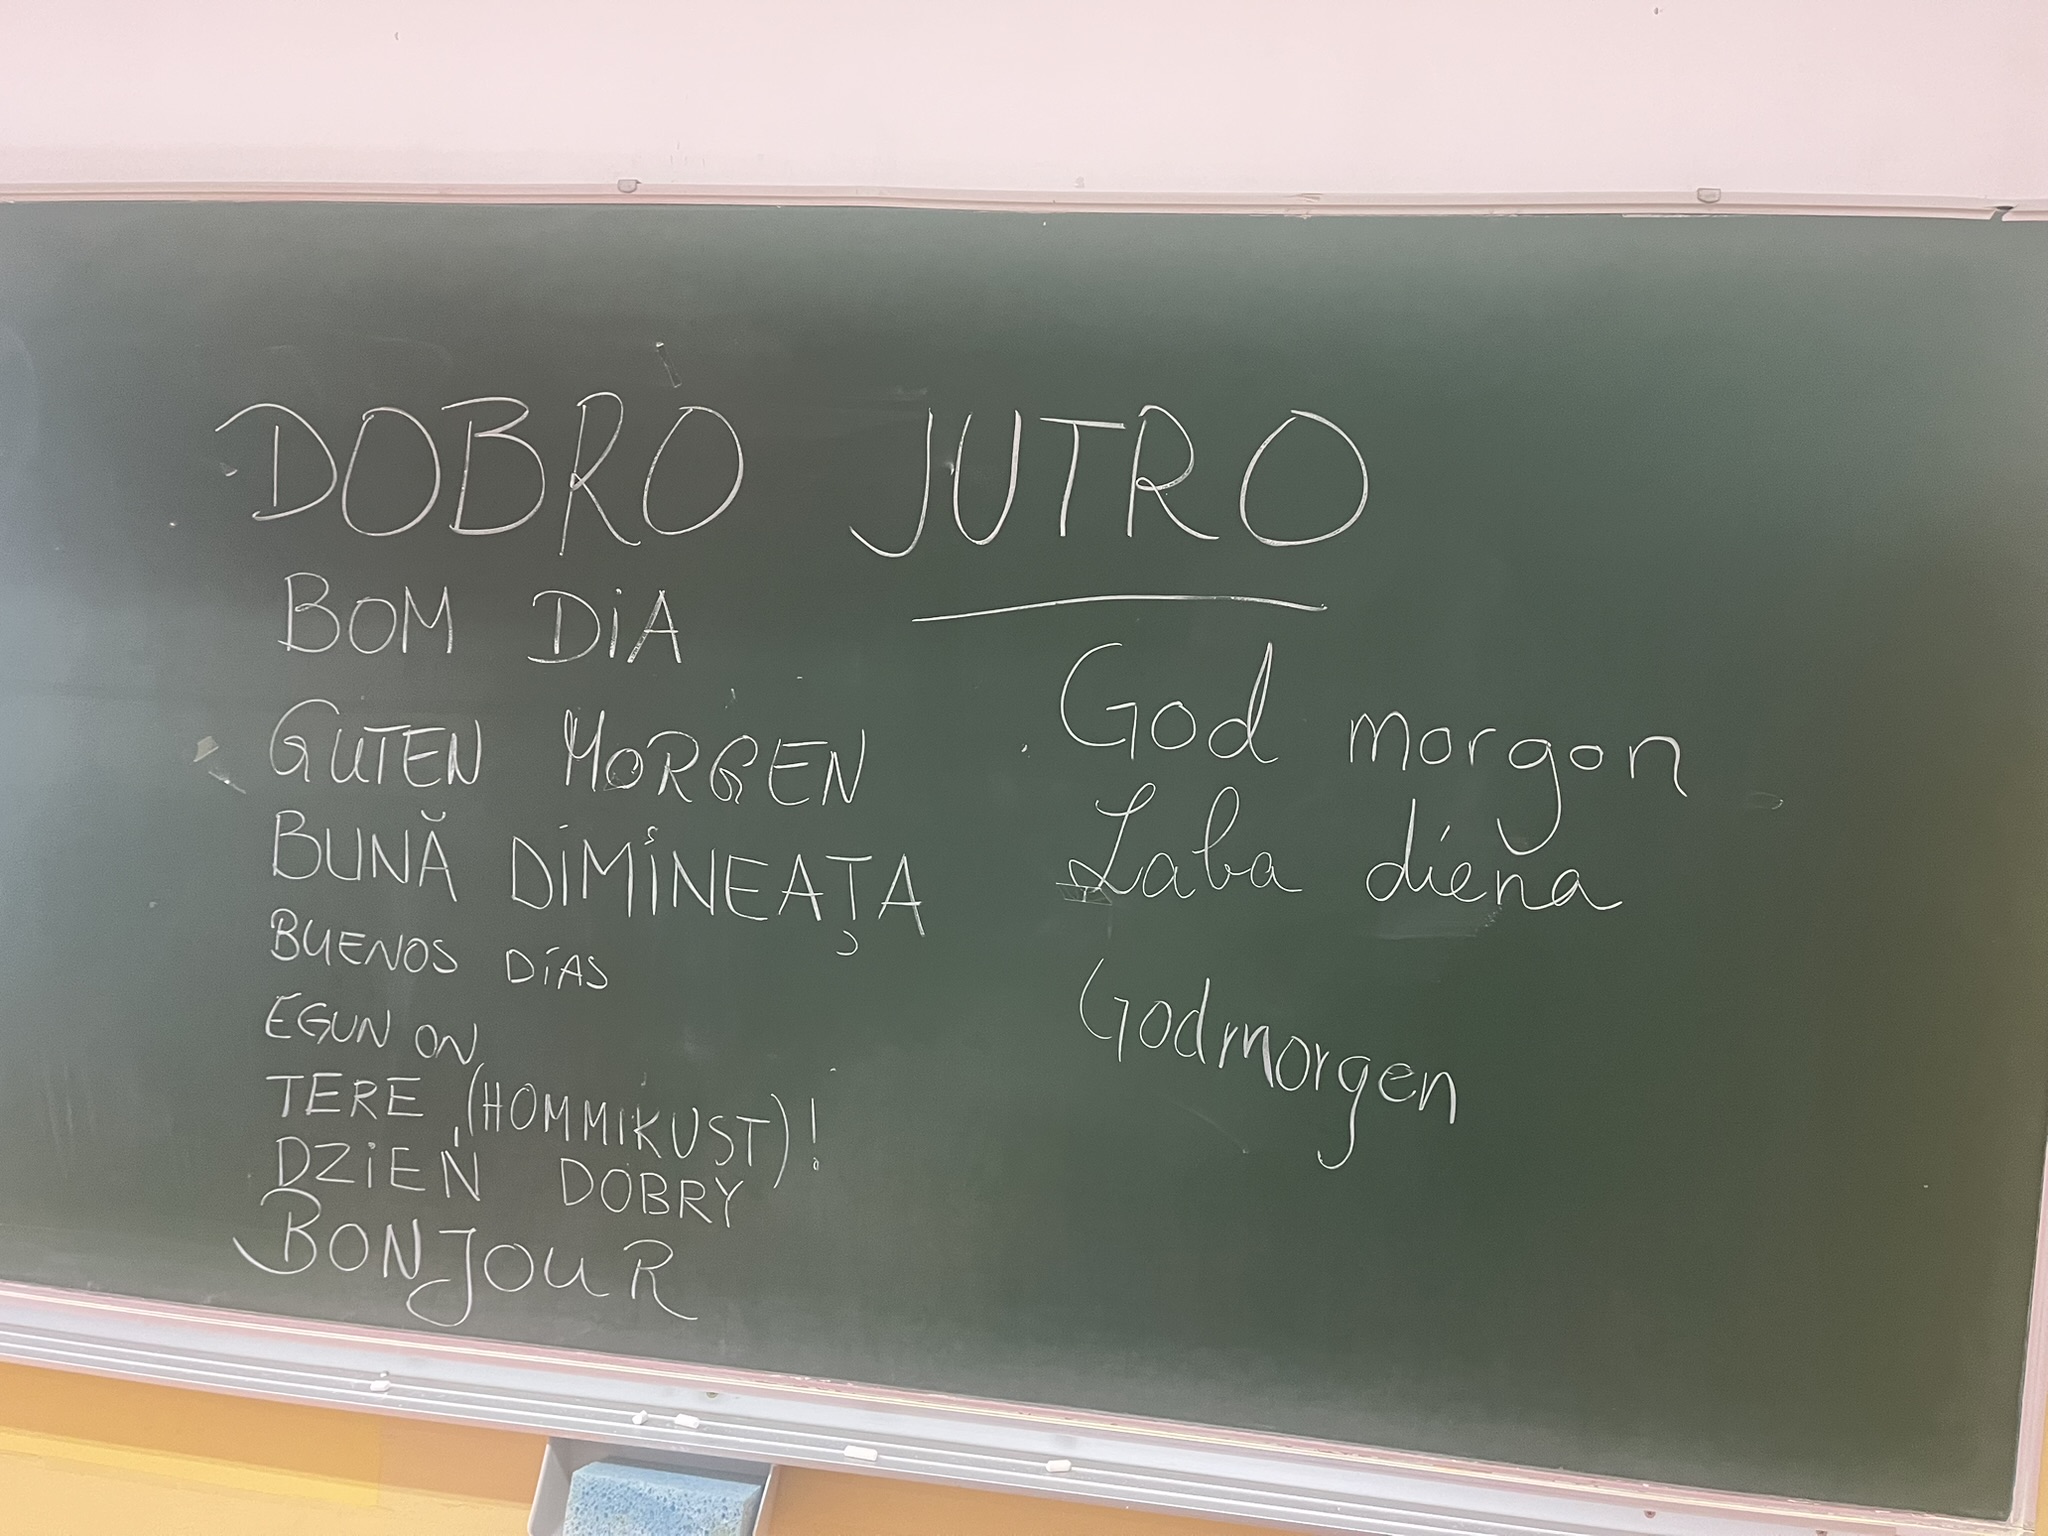 DOBRO JUTRO
BOM DiA
GUTEN MORGEN
BUNĂ DiMiNEAȚA
BUENOS DíAS
EGUN ON
TERE (HOMMIKUST)!
DZiEŃ DOBRY
BONJOUR
God morgon
Laba diena
Godmorgen